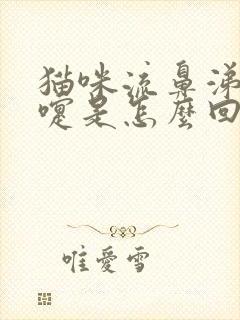 猫咪流鼻涕
嚏是怎麼回
唯愛雪